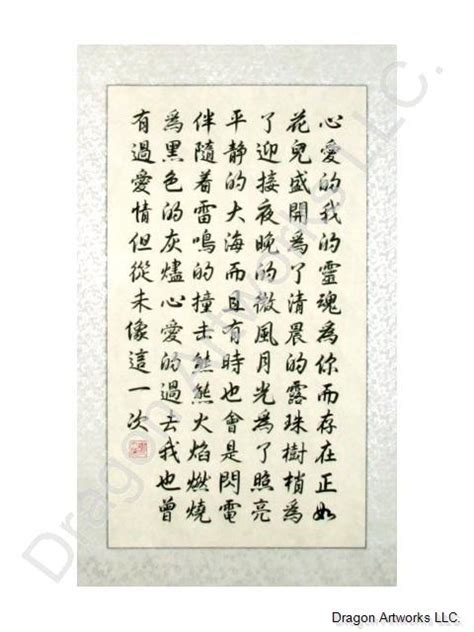 心愛的我的靈魂為你而存在正如
花兒盛開爲了清晨的露珠樹梢為
了迎接夜晚的微風月光為了照亮
平静的大海而且有時也會是閃電
伴隨着雷鳴的撞击熊熊火焰燃燒
爲黑色的灰燼心愛的過去我也曾
有過愛情但從未像這一次
Dragon Artworks LLC.
Dragon Artworks LLC.